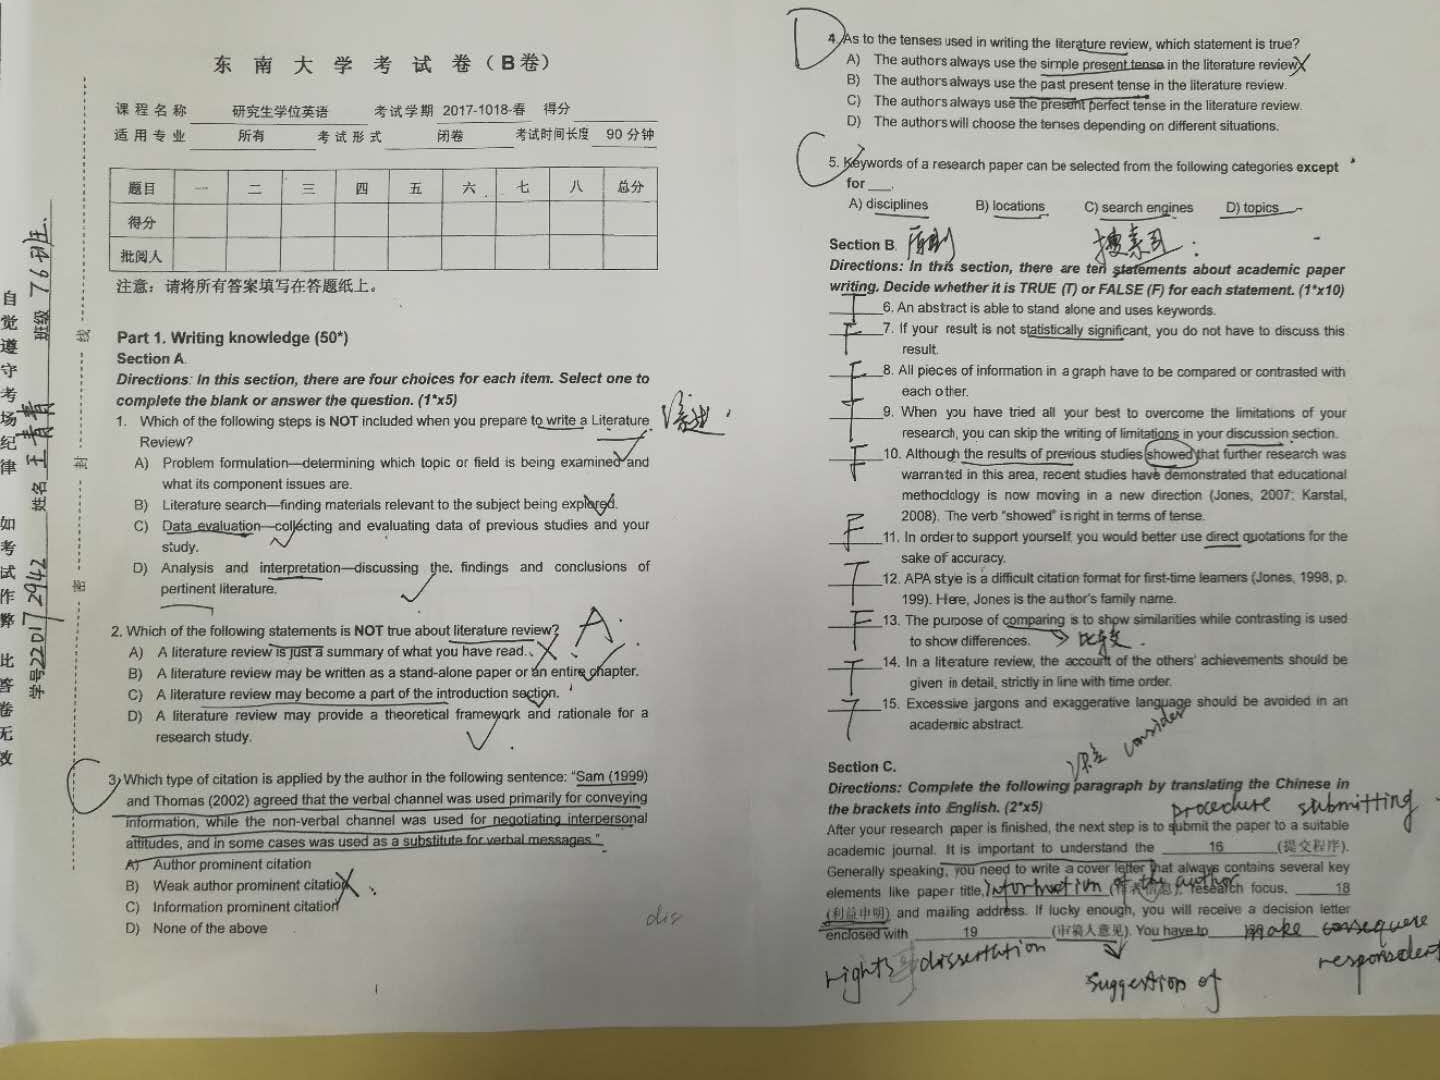 东 南 大 学 考 试 卷 （ B 卷）
课 程 名 称 研究生学位英语 考 试 学 期 2017-1018-春 得分
适 用 专 业 所有 考 试 形 式 闭卷 考试时间长度 90 分钟
题目 一 二 三 四 五 六 七 八 总分
得分
批阅人
注意：请将所有答案填写在答题纸上。
自觉遵守考场纪律 如考试作弊 此答卷无效
学号 220172942 姓名 王青青 班级 76班
密 封 线
Part 1. Writing knowledge (50*)
Section A.
Directions: In this section, there are four choices for each item. Select one to
complete the blank or answer the question. (1*x5)
1. Which of the following steps is NOT included when you prepare to write a Literature
Review?
A) Problem formulation—determining which topic or field is being examined and
what its component issues are.
B) Literature search—finding materials relevant to the subject being explored.
C) Data evaluation—collecting and evaluating data of previous studies and your
study.
D) Analysis and interpretation—discussing the findings and conclusions of
pertinent literature.
2. Which of the following statements is NOT true about literature review? A.
A) A literature review is just a summary of what you have read.
B) A literature review may be written as a stand-alone paper or an entire chapter.
C) A literature review may become a part of the introduction section.
D) A literature review may provide a theoretical framework and rationale for a
research study.
C
3. Which type of citation is applied by the author in the following sentence: "Sam (1999)
and Thomas (2002) agreed that the verbal channel was used primarily for conveying
information, while the non-verbal channel was used for negotiating interpersonal
attitudes, and in some cases was used as a substitute for verbal messages."
A) Author prominent citation
B) Weak author prominent citation
C) Information prominent citation
D) None of the above
dis
1
D
4. As to the tenses used in writing the literature review, which statement is true?
A) The authors always use the simple present tense in the literature review.
B) The authors always use the past present tense in the literature review.
C) The authors always use the present perfect tense in the literature review.
D) The authors will choose the tenses depending on different situations.
C
5. Keywords of a research paper can be selected from the following categories except
for ___.
A) disciplines B) locations C) search engines D) topics
Section B.
Directions: In this section, there are ten statements about academic paper
writing. Decide whether it is TRUE (T) or FALSE (F) for each statement. (1*x10)
T 6. An abstract is able to stand alone and uses keywords.
F 7. If your result is not statistically significant, you do not have to discuss this
result.
F 8. All pieces of information in a graph have to be compared or contrasted with
each other.
9. When you have tried all your best to overcome the limitations of your
research, you can skip the writing of limitations in your discussion section.
F 10. Although the results of previous studies showed that further research was
warranted in this area, recent studies have demonstrated that educational
methodology is now moving in a new direction (Jones, 2007; Karstal,
2008). The verb "showed" is right in terms of tense.
F 11. In order to support yourself, you would better use direct quotations for the
sake of accuracy.
T 12. APA style is a difficult citation format for first-time learners (Jones, 1998, p.
199). Here, Jones is the author's family name.
F 13. The purpose of comparing is to show similarities while contrasting is used
to show differences. 比较.
T 14. In a literature review, the account of the others' achievements should be
given in detail, strictly in line with time order.
T 15. Excessive jargons and exaggerative language should be avoided in an
academic abstract.
consider
Section C.
Directions: Complete the following paragraph by translating the Chinese in
the brackets into English. (2*x5)
procedure submitting
After your research paper is finished, the next step is to submit the paper to a suitable
academic journal. It is important to understand the 16 (提交程序).
Generally speaking, you need to write a cover letter that always contains several key
elements like paper title, information of the author (作者信息), research focus, 18
(利益申明) and mailing address. If lucky enough, you will receive a decision letter
enclosed with 19 (审稿人意见). You have to make
rights dissertation
suggestion of